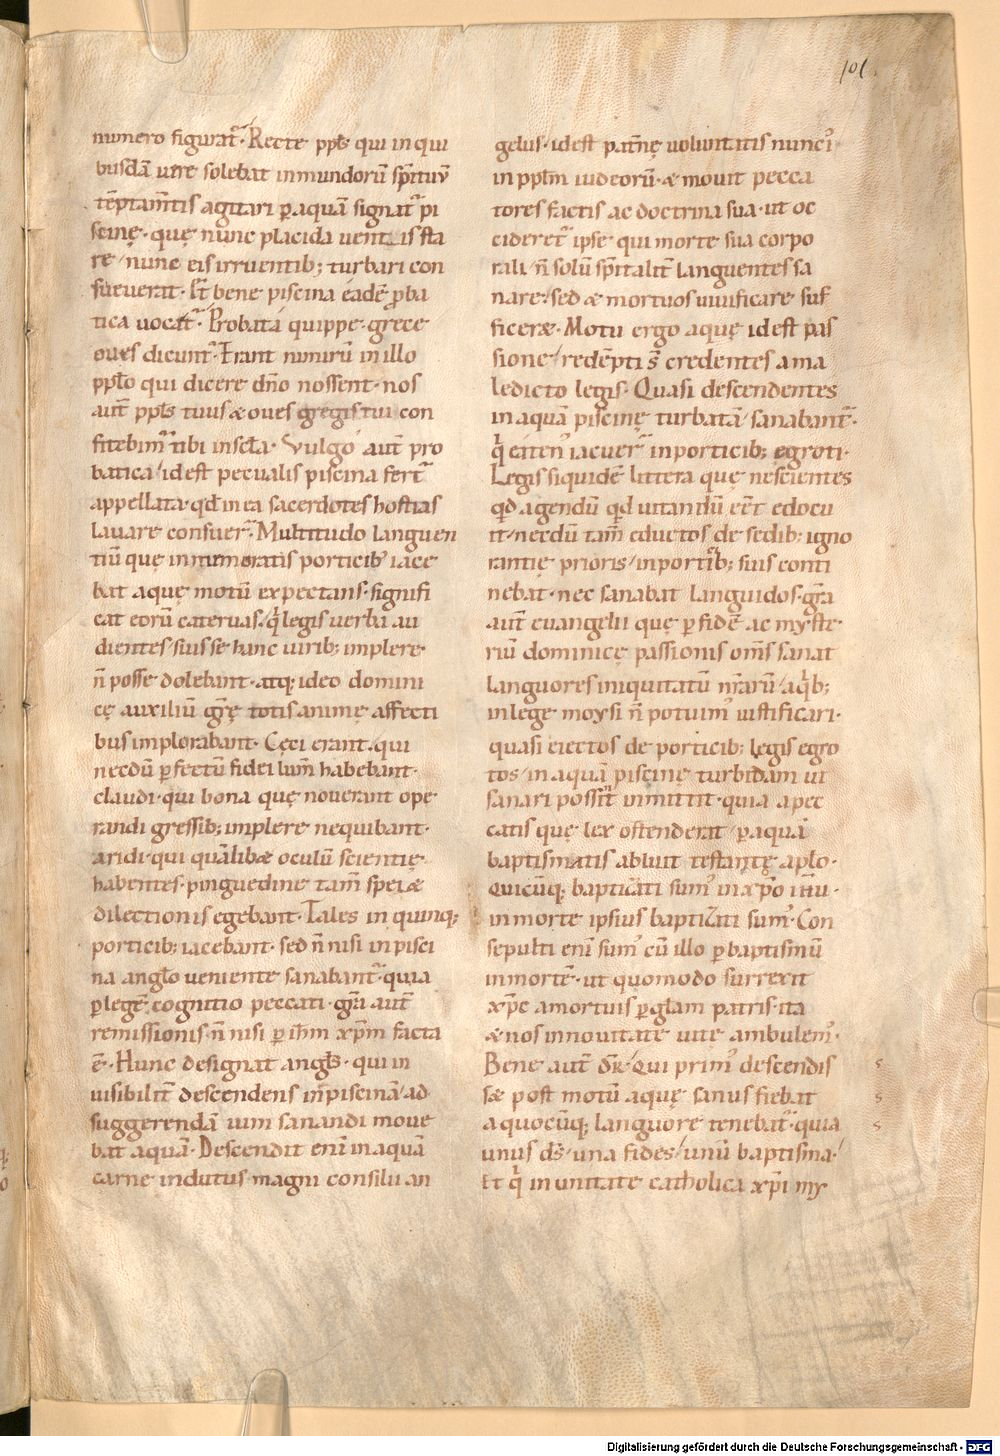 101.
numero figurat᷑. Recte ppls qui in qui
busdā uire solebat inmundorū sp̄ituū
tēptam̄tis agitari p̲ aquā signat᷑ pi
scinę. quę nunc placida uentis sta
re / nunc eis irruentib; turbari con
sueuerat. Et bene piscina eadē p̲ba
tica uocat᷑. Probata quippe. grece
oues dicunt᷑. Erant nimirū in illo
pplo qui dicere dn̄o nossent. nos
aut̄ ppls tuus & oues gregis tui con
fitebim᷑ tibi in scla. Vulgo aut̄ pro
batica / idest pecualis piscina fert᷑
appellata. qd̄ in ea sacerdotes hostias
lauare consuer̄. Multitudo languen
tiū quę in numeratis porticib; iace
bat aquę motū expectans. signifi
cat eorū cateruas. q̇ legis uerba au
dientes suis se hanc uirib; implere
n̄ posse dolebant. atq; ideo domini
cę auxiliū grę̄ totis animę affecti
bus implorabant. Cęci erant. qui
necdū p̲fectū fidei lum̄ habebant.
claudi. qui bona quę nouerant ope
randi gressib; implere nequibant.
aridi. qui quālib& oculū scientię
habentes. pinguedine tam̄ spei &
dilectionis egebant. Tales in quinq;
porticib; iacebant. sed n̄ nisi in pisci
na anglo ueniente sanabant᷑. quia
p̲ legē cognitio peccati. gr̄a aut̄
remissionis n̄ nisi p̲ ih̄m xp̄m facta
ē. Hunc designat angls. qui in
uisibilit̄ descendens in piscinā / ad
suggerendā uim sanandi moue
bat aquā. Descendit eni in aquā
carne indutus. magni consilii an
gelus. idest patn̄ę uoluntatis nunci᷒
in pplm iudeorū. & mouit pecca
tores factis ac doctrina sua. ut oc
cideret᷑ ipse qui morte sua corpo
rali / n̄ solū sp̄italit̄ languentes sa
nare. sed & mortuos uiuificare suf
ficer&. Motu ergo aquę idest pas
sione / redēpti s̄ credentes a ma
ledicto legis. Quasi descendentes
in aquā piscinę turbatā / sanabant᷑.
q̇ eaten᷒ iacuer̄ in porticib; egroti.
Legis siquidē littera quę nescientes
qd̄ agendū qd̄ uitandū eēt edocu
it / necdū tam̄ eductos de sedib; igno
rantię prioris / in porticib; suis conti
nebat. nec sanabat languidos. gr̄a
aut̄ euangelii quę p̲ fidē ac myste
riū dominicę passionis om̄s sanat
languores iniquitatū nr̄arū / aq̇b;
in lege moysi n̄ potuim᷒ iustificari.
quasi eiectos de porticib; legis egro
tos / in aquā piscinę turbidam ut
sanari possint inmittit. quia a pec
catis quę lex ostenderat / p̲ aquā
baptismatis abluit testantę aplo.
Quicūq; baptizati sum᷒ in xp̄o ih̄u.
in morte ipsius baptizati sum᷒. Con
sepulti eni sum᷒ cū illo p̲ baptismū
in mortē. ut quomodo surrexit
xp̄c a mortuis p̲ glam patris. ita
& nos in nouitate uitę ambulem᷒.
Bene aut̄ dr̄. Qui prim᷒ descendis
s& post motū aquę sanus fiebat
a quocūq; languore tenebat᷑. quia
unus ds̄ / una fides / unū baptisma. /
Et q̇ in unitate catholica xp̄i my
s
s
s
Digitalisierung gefördert durch die Deutsche Forschungsgemeinschaft - DFG